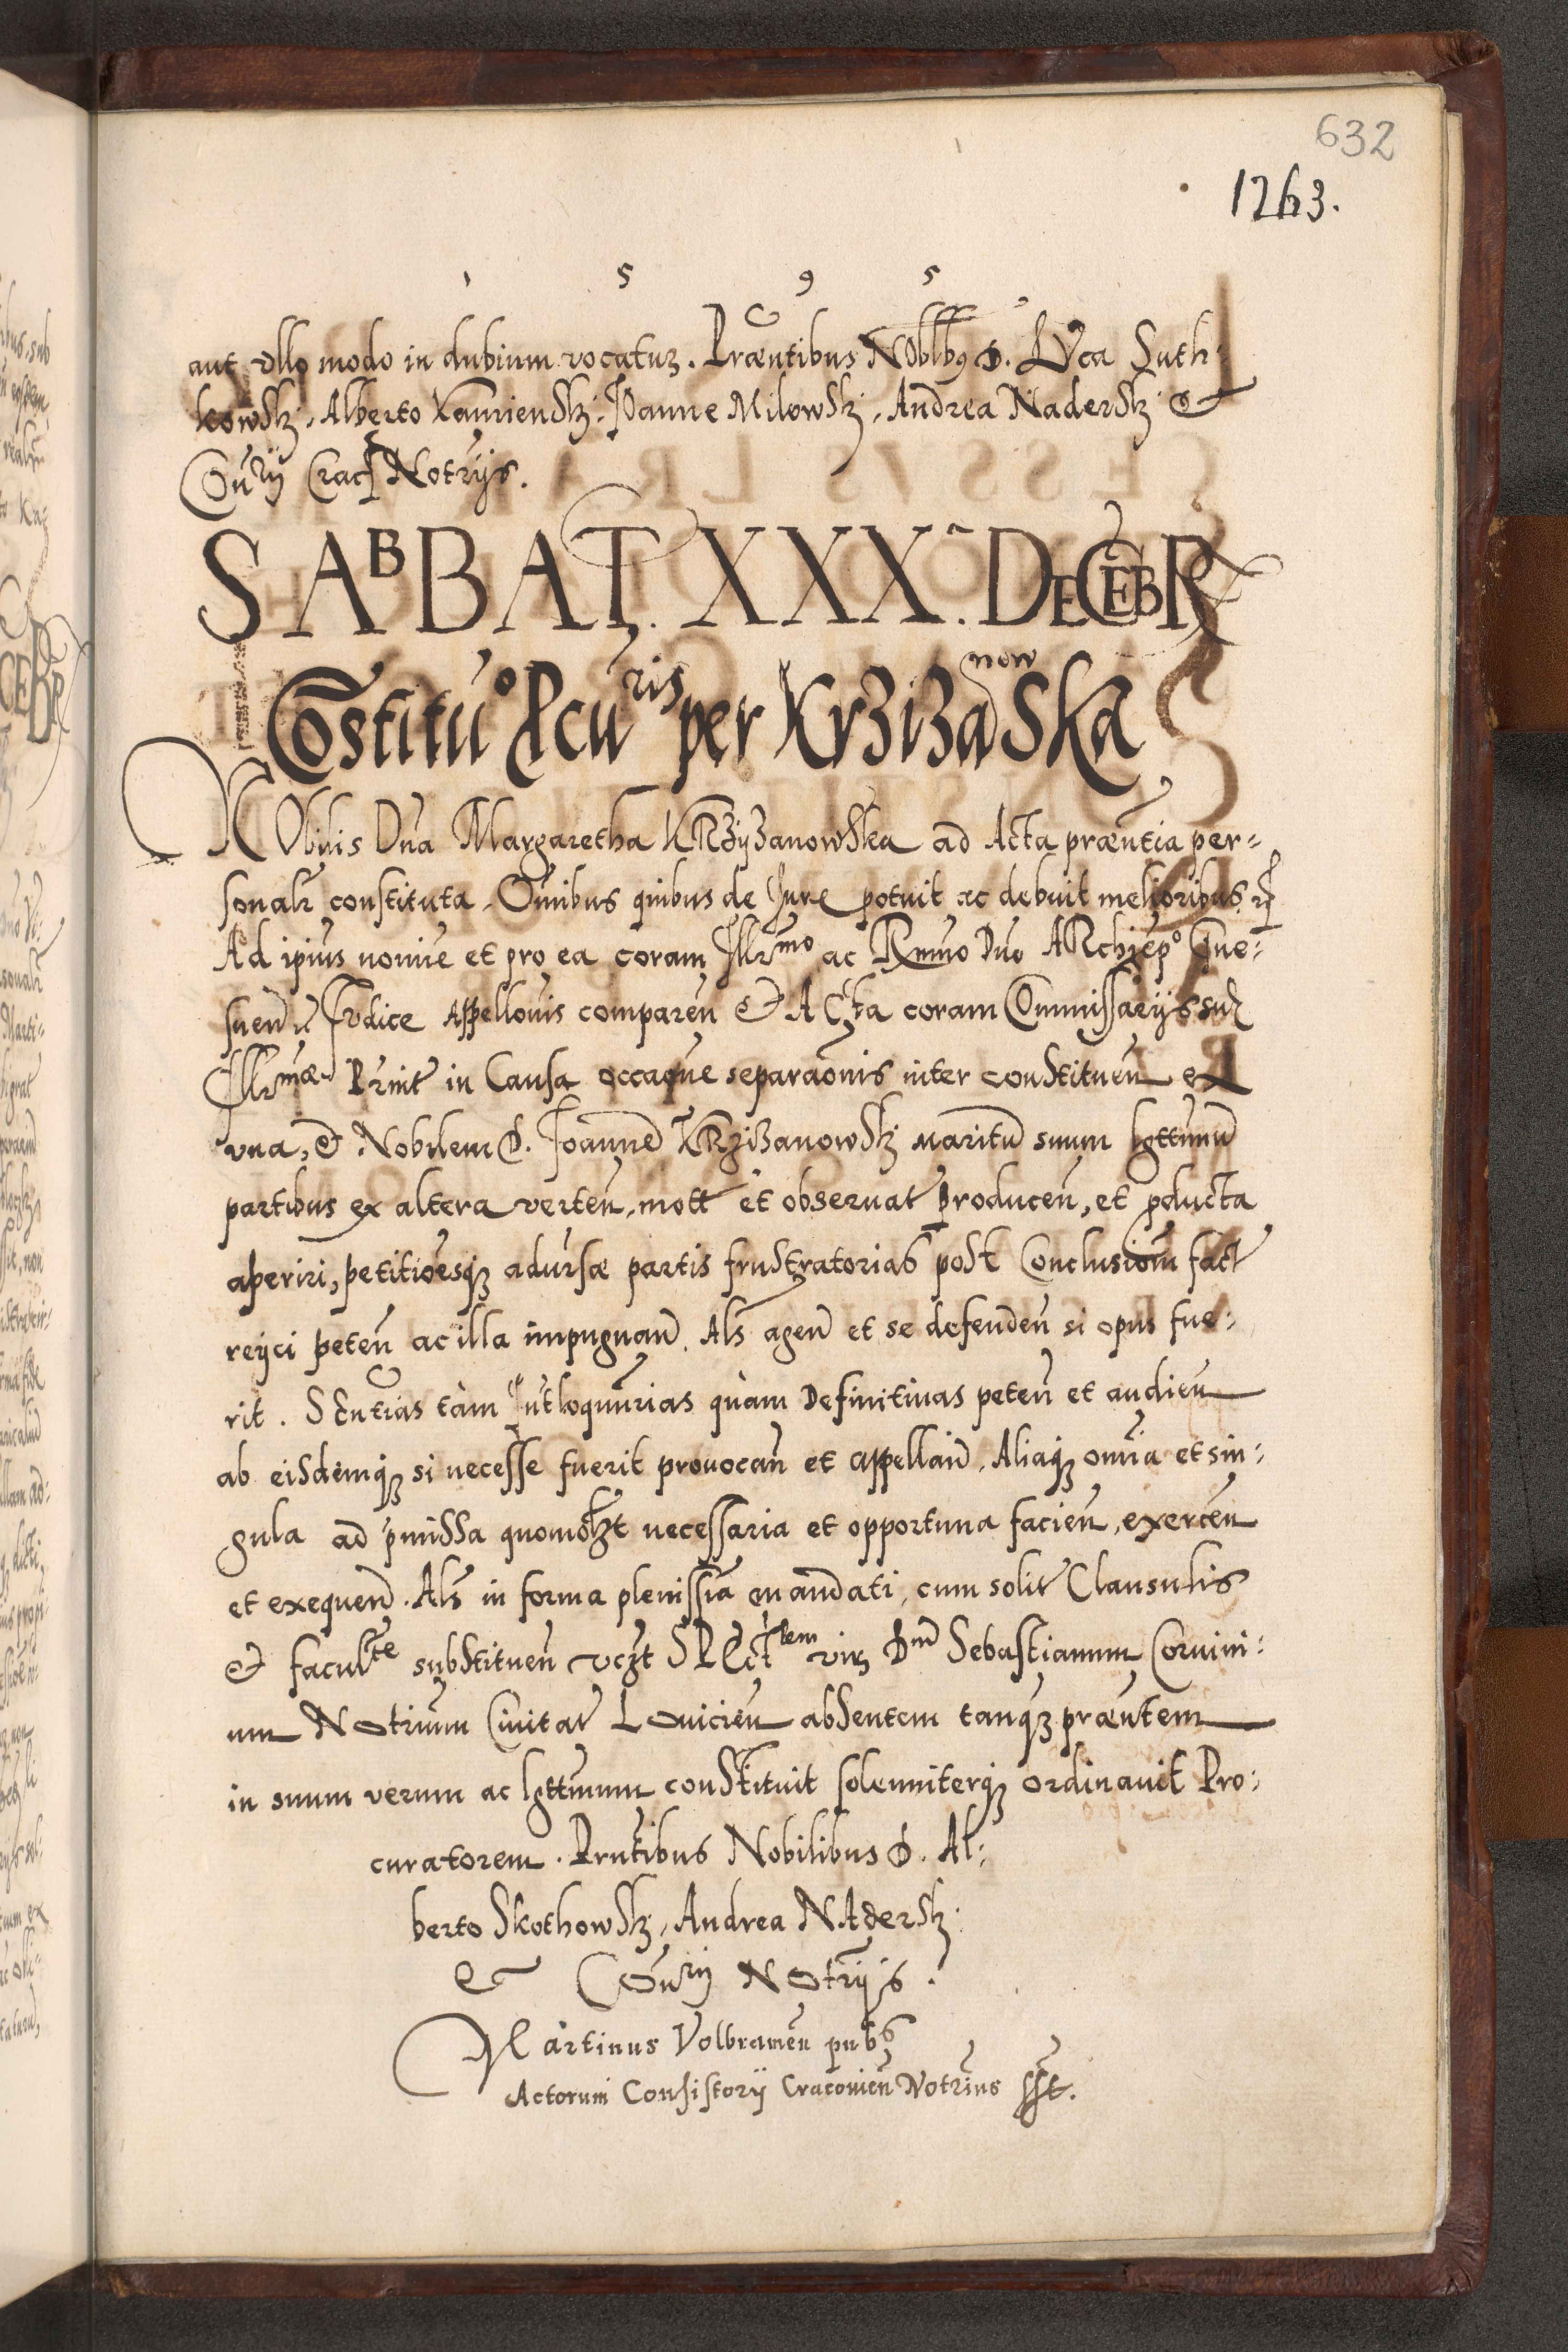 632
1263.
1 5 9 5
aut vllo modo in dubium vocatuȝ. Præntibus Noblbꝫ D. Lvca Suth:
kowskj, Alberto Kamienskj, Joanne Milowskj, Andrea Naderskj &
Conrij Crac Notrijs.
SABBAT. XXX. DECEBR
Costitu° Pcuris per Krzizanowska
Nobilis Dna Margaretha KRzyzanowska ad Acta præntia per=
sonalr constituta. Omibus quibus de Jure potuit ac debuit melioribus
Ad ipius nomine et pro ea coram Illrmo ac Rmmo Dno ARchiepo Gne:
snen Judice Appellonis comparen & Acta coram Commissarijs suæ
Illrmæ Prnit in Causa occaque separaonis inter constituen ex
vna, & Nobilem D. Joanne KRzizanowskj maritu suum lgttimu
partibus ex altera verten, mott et obseruat producen, et pducta
aperiri, petitioesqȝ adursæ partis frustratorias post Conclusiom fact
reijci peten ac illa impugnan. Als agen et se defenden si opus fue:
rit. Sentias tam Intloqutrias quam Definitiuas peten et audien
ab eisdemqȝ si necesse fuerit prouocan et appellan. Aliaqȝ omia et sin:
gula ad pmissa quomolzt necessaria et opportuna facien, exercen
et exequen. Als in forma plenissia mandati, cum solit Clausulis
& facultte substituen vczt SPEctlem vir Dnm Sebastianum Coruini:
um Notrium Ciuitat Louicien absentem tanqȝ præntem
in suum verum ac lgttimum constituit solemniterqȝ ordinauit Pro:
curatorem. Prntibus Nobilibus D. Al:
berto Skothowskj, Andrea NAderskj
& Conrij Notrijs.
Martinus Volbramen pubs
Actorum Consistorij Cracouien Notrius sst.